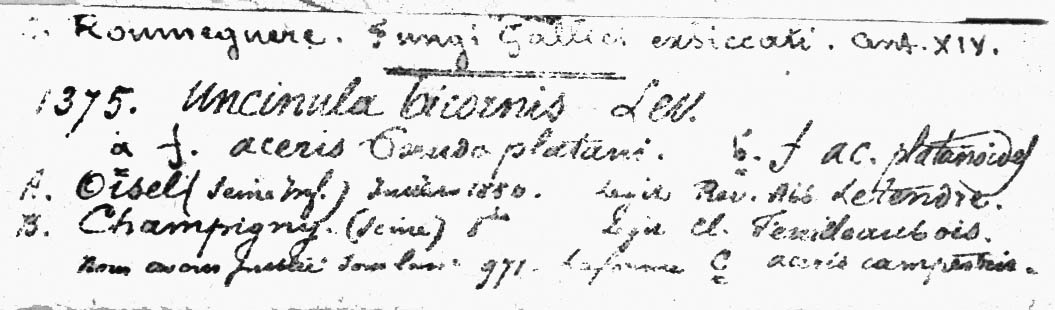 C. Roumeguere. Fungi Gallici exsiccati. Cent. XIV.
1375. Uncinula bicornis Lev.
a f. aceris Pseudo platani. b. f ac. platanoides
A. Oissel (Seine Inf.) 1880. Legit Rev. Abb Letendre.
B. Champigny. (Seine) Legit Cl. Feuilleaubois.
Nous avons publié sous le no 971. La forme C aceris campestris.